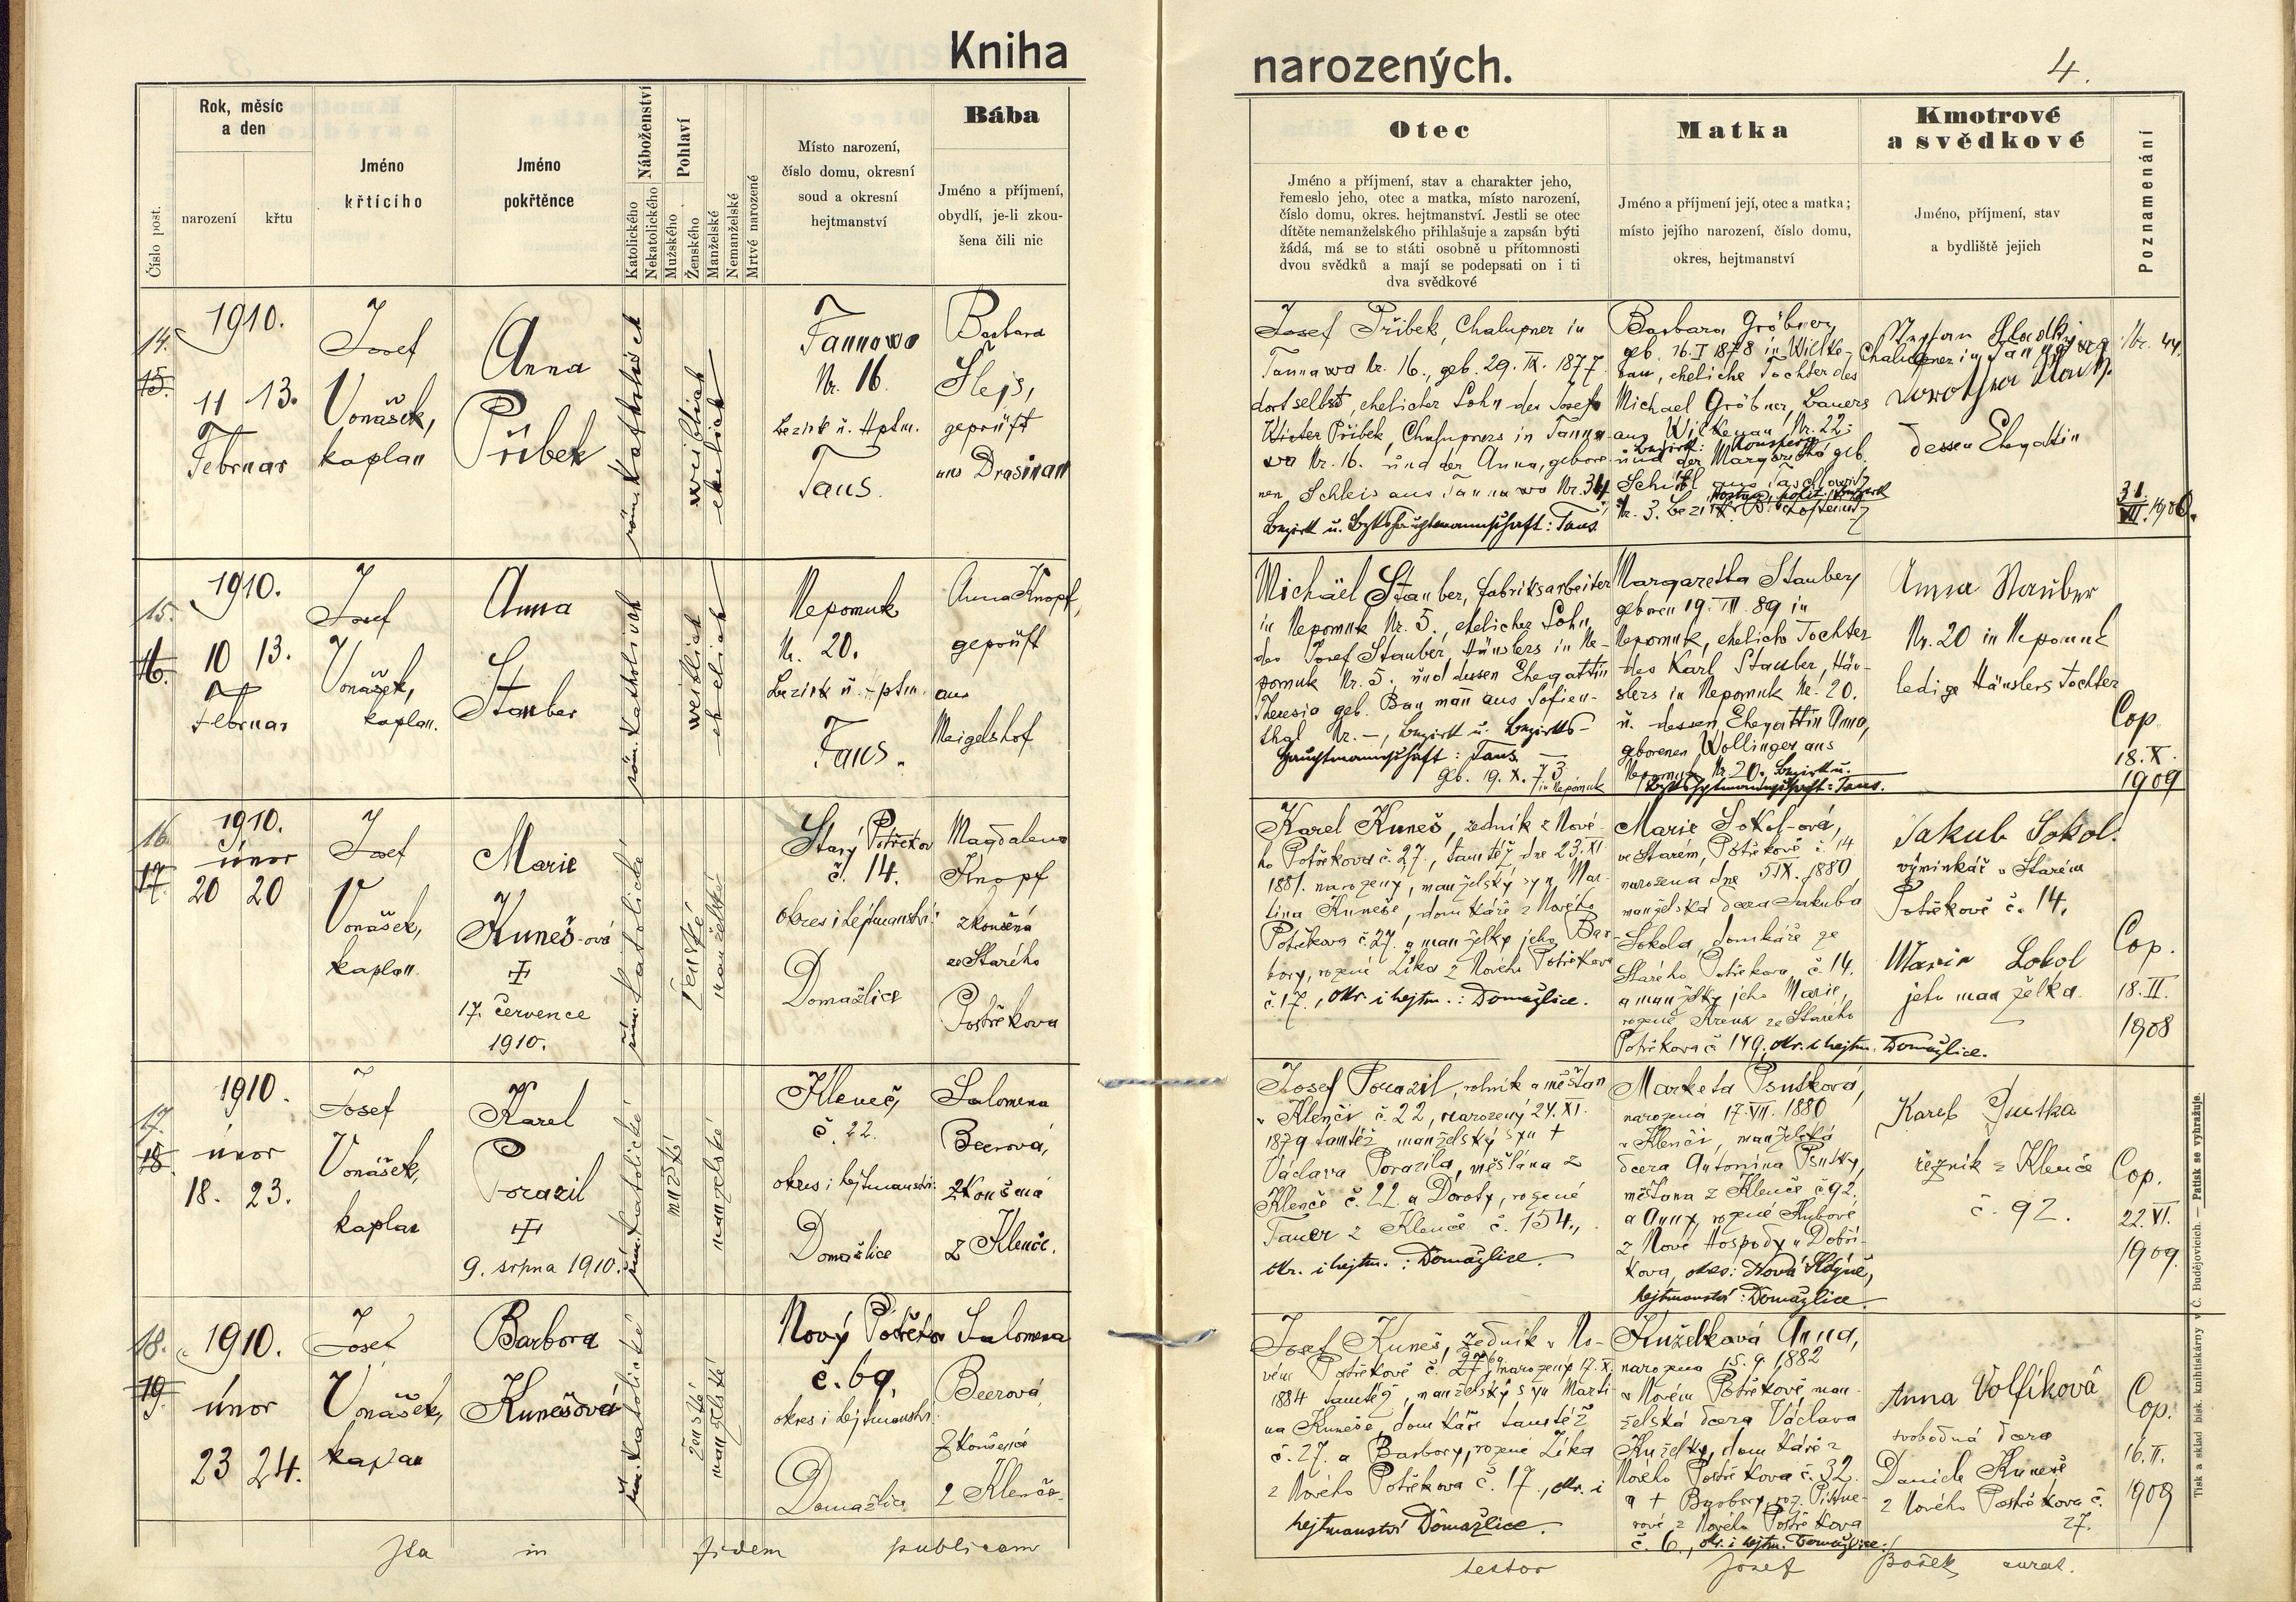 Kniha
narozených.
4.
Číslo post.
Rok, měsíc
a den
narození
křtu
Jméno
křtícího
Jméno
pokřtěnce
Náboženství
Katolického
Nekatolického
Pohlaví
Mužského
Ženského
Manželské
Nemanželské
Mrtvé narozené
Místo narození,
číslo domu, okresní
soud a okresní
hejtmanství
Bába
Jméno a příjmení,
obydlí, je-li zkou-
šena čili nic
Otec
Jméno a příjmení, stav a charakter jeho,
řemeslo jeho, otec a matka, místo narození,
číslo domu, okres. hejtmanství. Jestli se otec
dítěte nemanželského přihlašuje a zapsán býti
žádá, má se to státi osobně u přítomnosti
dvou svědků a mají se podepsati on i ti
dva svědkové
Matka
Jméno a příjmení její, otec a matka;
místo jejího narození, číslo domu,
okres, hejtmanství
Kmotrové
a svědkové
Jméno, příjmení, stav
a bydliště jejich
Poznamenání
14.
15.
1910.
11 13.
Februar
Josef
Vonášek,
kaplan
Anna
Přibek
röm. katholisch
weiblich
ehelich
Tannawa
Nr. 16.
Bezirk u. Hptm.
Taus.
Barbara
Šlejs,
geprüft
aus Drasinau
Josef Přibek, Chalupner in
Tannawa Nr. 16., geb. 29. IX. 1877.
dortselbst, ehelicher Sohn des Josef
Přibek, Chalupners in Tanna-
wa Nr. 16. und der Anna, gebore-
nen Schleis aus Tannawa Nr. 34
Bezirk u. Bzkshauptmannschaft: Taus.
Barbara Gröbner,
geb. 16. I 1878 in Wilke-
nau, eheliche Tochter des
Michael Gröbner, Bauers
aus Wilkenau, Nr. 22;
Bezirk: Ronsperg
und der Margaretha geb.
aus Taschlowitz
Nr. 3. Bezirk
Chalupner in Tannawa Nr. 44.
Dorothea
dessen Ehegattin
31.
VII. 1900.
15.
16.
1910.
10 13.
Februar
Josef
Vonášek,
kaplan.
Anna
Stauber
röm. katholisch
weiblich
ehelich
Nepomuk
Nr. 20.
Bezirk u. Hptm.
Taus.
Anna Knopf,
geprüft
aus
Meigelshof
Michäel Stauber, Fabriksarbeiter
in Nepomuk Nr. 5. ehelicher Sohn
des Josef Stauber, Häuslers in Ne-
pomuk Nr. 5. und dessen Ehegattin
Theresia geb. Baumann aus Sofien-
thal Nr. –, Bezirk u. Bezirks-
hauptmannschaft: Taus.
geb. 19. X. 73
in Nepomuk
Margaretha Stauber,
geboren 19. VII. 89 in
Nepomuk, eheliche Tochter
des Karl Stauber, Häu-
slers in Nepomuk Nr. 20.
u. dessen Ehegattin Anna,
geborenen Wollinger aus
Nepomuk Nr. 20., Bezirk u.
Bzkshptmannschaft: Taus.
Anna Stauber
Nr. 20 in Nepomuk
ledige Häuslers Tochter
Cop.
18. X.
1909
16
17.
1910.
únor
20 20
Josef
Vonášek,
kaplan.
Marie
Kuneš-ová
17. července
1910.
řím. katolické
ženské
manželské
Starý Postřekov
č. 14.
okres i hejtmanství:
Domažlice
Magdalena
Knopf
zkoušená
ze Starého
Postřekova
Karel Kuneš, zedník z Nové-
ho Postřekova č. 27., tamtéž dne 23. XI
1881. narozený, manželský syn Mar-
tina Kuneše, domkáře z Nového
Postřekova č. 27. a manželky jeho Bar-
bory, rozené Žíka z Nového Postřekova
č. 17., okr. i hejtm.: Domažlice.
Marie Sokol-ová,
ve Starém Postřekově č. 14
narozena dne 5 IX. 1880,
manželská dcera Jakuba
Sokola, domkáře ze
Starého Postřekova, č. 14.
a manželky jeho Marie,
rozené Kreus ze Starého
Postřekova č. 149, okr. i hejtm. Domažlice.
Jakub Sokol.
výminkář v Starém
Postřekově č. 14,
Marie Sokol
jeho manželka.
Cop.
18. II.
1908
17.
18.
1910.
únor
18. 23.
Josef
Vonášek,
kaplan
Karel
Porazil
9. srpna 1910.
řím. katolické
mužské
manželské
Kleneč,
č. 22.
okres i hejtmanství:
Domažlice
Salomena
Beerová,
zkoušená
z Klenče.
Josef Porazil, rolník a měšťan
v Klenči č. 22, narozený 24. XI.
1879 tamtéž manželský syn +
Václava Porazila, měšťana z
Klenče č. 22. a Doroty, rozené
Tauer z Klenče č. 154.,
okr. i hejtm.: Domažlice.
Marketa Psutková,
narozená 17. VII. 1880
v Klenči, manželská
dcera Antonína Psutky,
měšťana z Klenče č 92.
a Anny, rozené Kubové
z Nové Hospody u Dobří-
kova, okres: Nová Kdyně,
hejtmanství: Domažlice.
Karel Psutka
řezník z Klenče
č. 92.
Cop.
22. VI.
1909.
18.
19.
1910.
únor
23 24.
Josef
Vonášek,
kaplan
Barbora
Kunešová
řím. katolické
ženské
manželské
Nový Postřekov
č. 69.
okres i hejtmanství:
Domažlice
Salomena
Beerová
zkoušená
z Klenče.
Josef Kuneš, zedník v No-
vém Postřekově č. 27, narozený 17. X.
1884 tamtéž, manželský syn Marti-
na Kuneše, domkáře tamtéž
č. 27. a Barbory, rozené Žíka
z Nového Postřekova č. 17., okr. i
hejtmanství Domažlice.
Kuželková Anna,
narozena 15. 9. 1882
v Novém Postřekově man-
želská dcera Václava
Kuželky, domkáře z
Nového Postřekova č. 32.
a + Barbory, roz.
z Nového Postřekova
č. 6., okr. i hejtm. Domažlice.
Anna Volfíková
svobodná dcera
Davida Kuneše
z Nového Postřekova č.
27.
Cop.
16. II.
1909
Ita in fidem publicam
testor Josef Bošek curat.
Tisk a sklad bisk. knihtiskárny v Č. Budějovicích. — Patisk se vyhražuje.